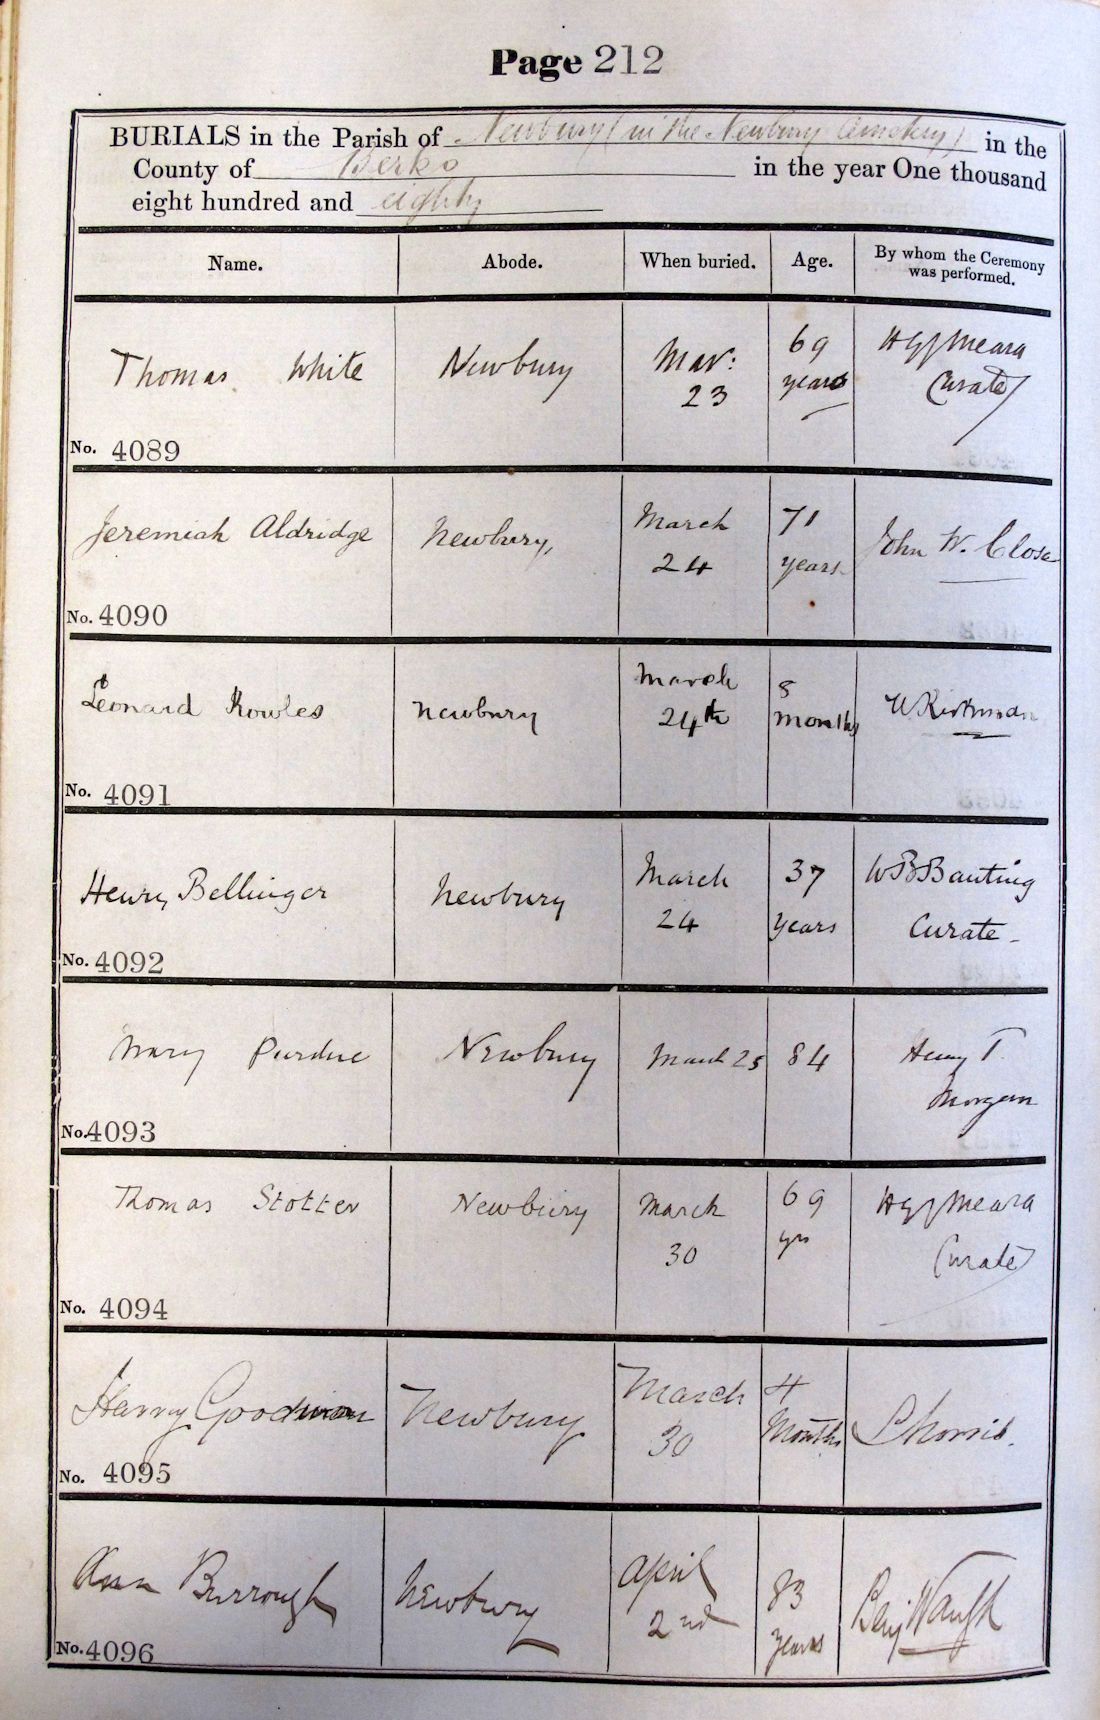 Page 212
BURIALS in the Parish of Newbury (in the Newbury Cemetery) in the
County of Berks in the year One thousand
eight hundred and eighty
Name. Abode. When buried. Age. By whom the Ceremony
was performed.
Thomas White Newbury Mar: 69 Meara
23 years Curate
No. 4089
Jeremiah Aldridge Newbury, March 71 John W. Close
24 years
No. 4090
Leonard Rowles Newbury March 8 W Kirkman
24th Months
No. 4091
Henry Bellinger Newbury March 37 W B Banting
24 Years Curate
No. 4092
Mary Purdue Newbury March 25 84 Henry T.
Morgan
No. 4093
Thomas Stotter Newbury March 69 Meara
30 yrs Curate
No. 4094
Harry Goodman Newbury March 4
30 Months
No. 4095
Ann Burrough Newbury April 83 Benj Waugh
2nd years
No. 4096